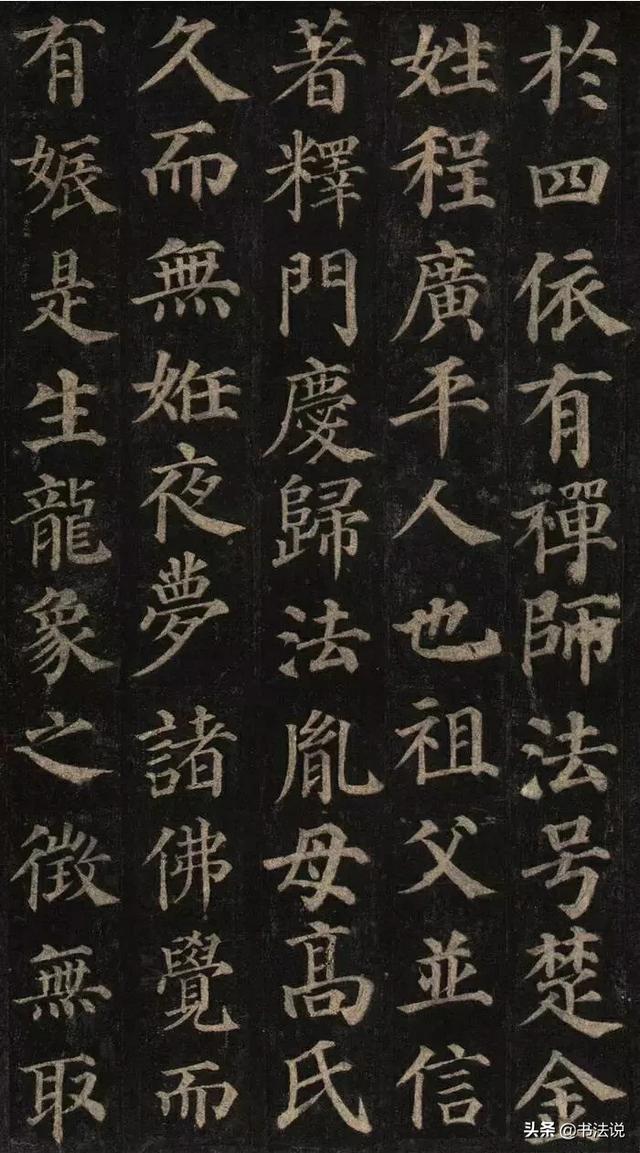 於四依有禪師法号楚金
姓程廣平人也祖父並信
著釋門慶歸法胤母高氏
久而無姙夜夢諸佛覺而
有娠是生龍象之徵無取
头条 @书法说